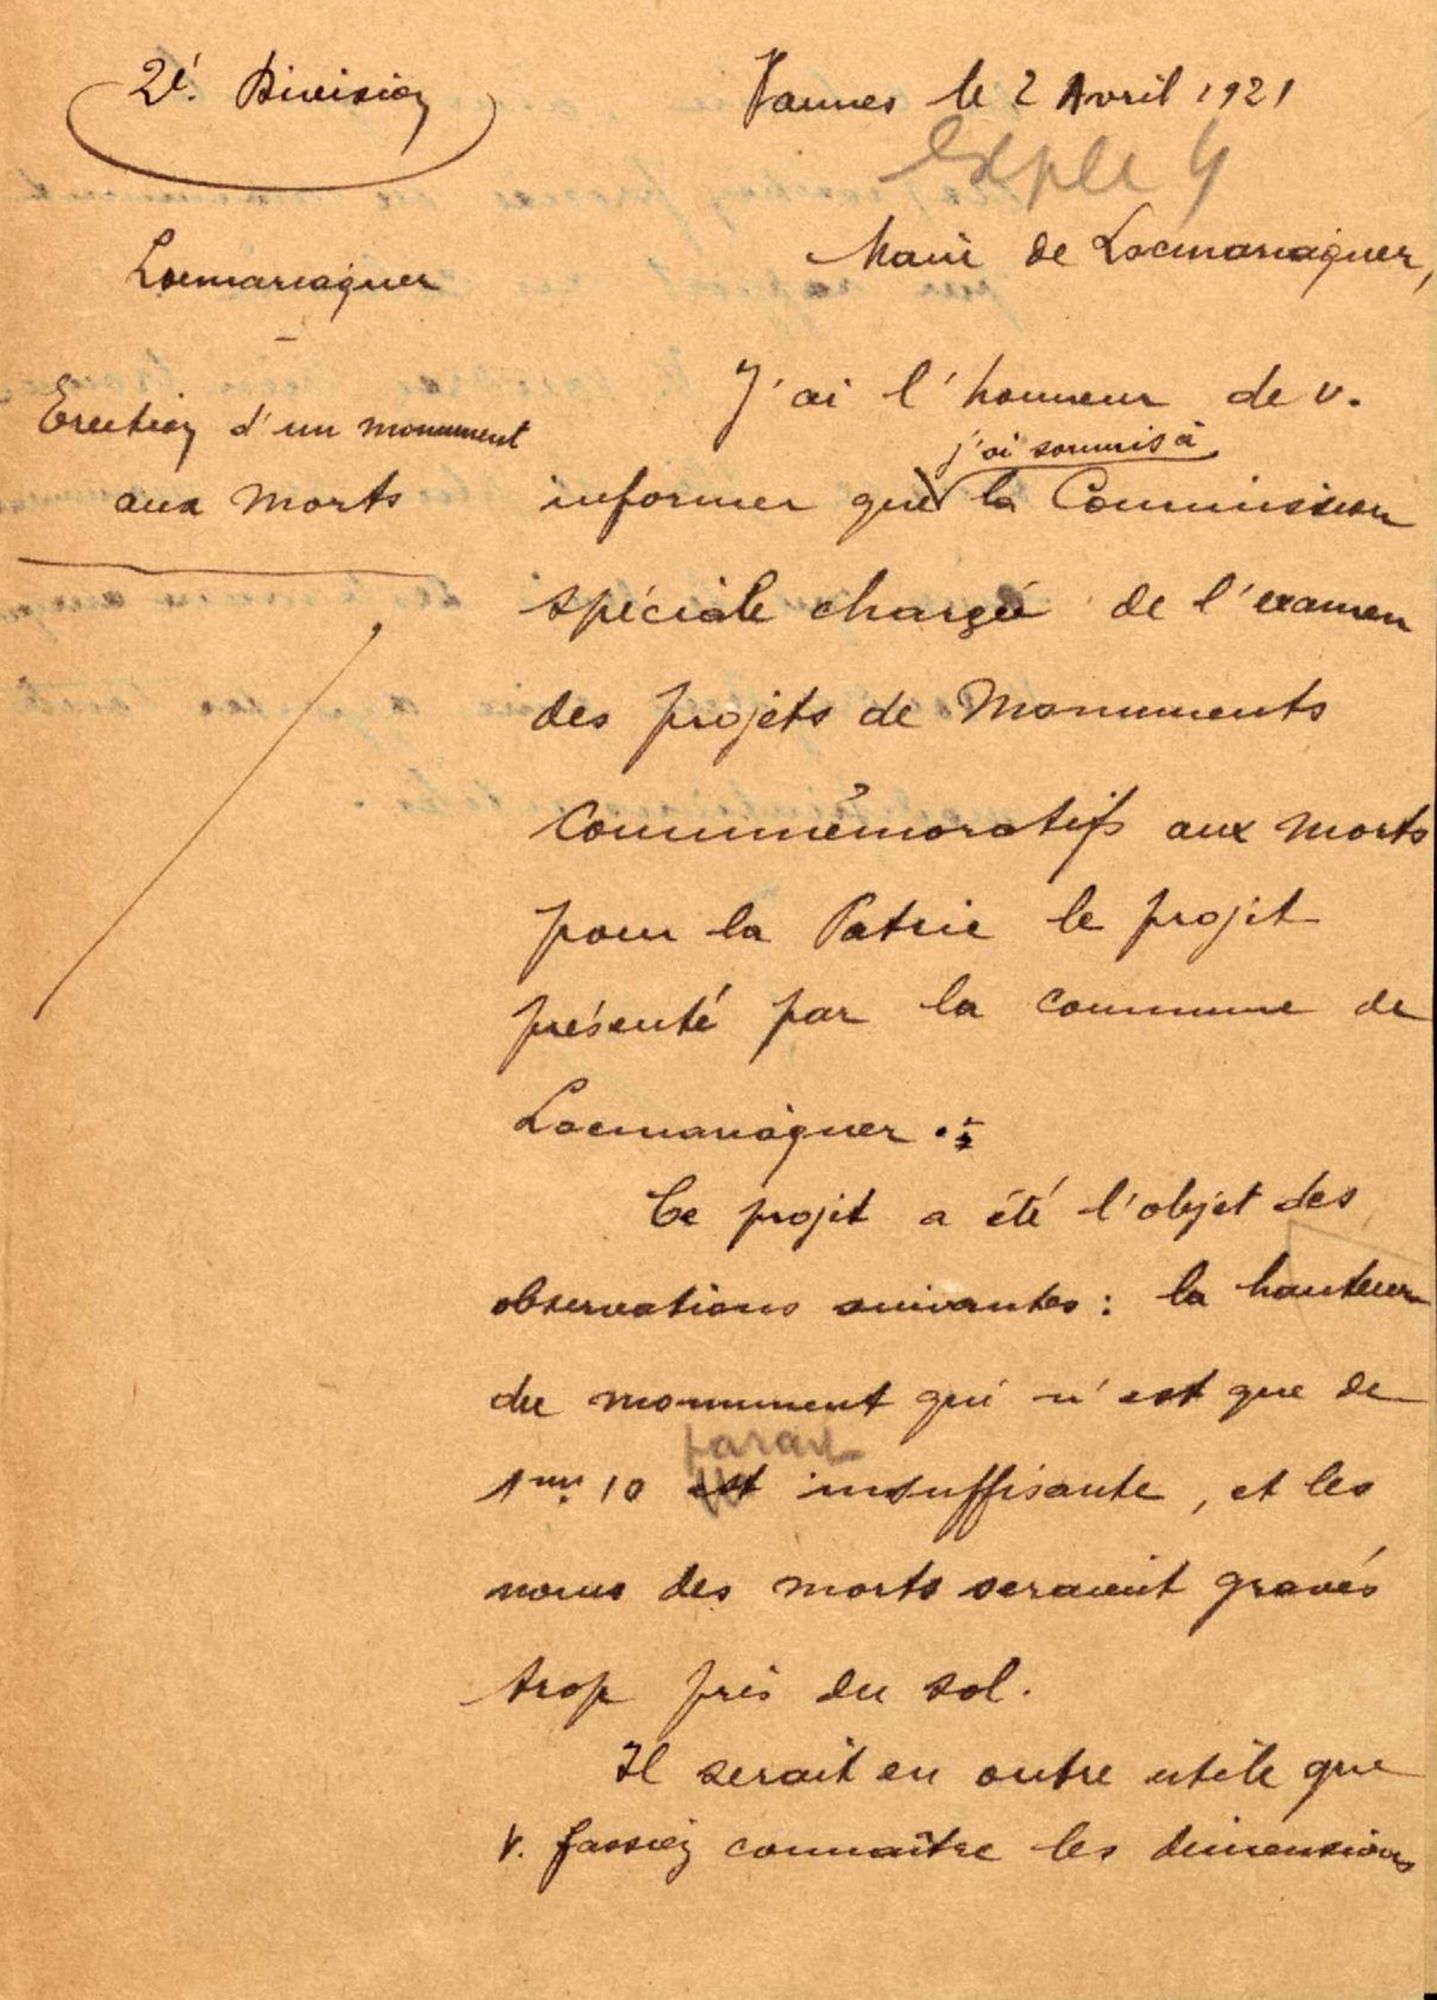 2è. Division
Vannes le 2 Avril 1921
Locmariaquer
Erection d'un monument
aux Morts
Maire de Locmariaquer,
J'ai l'honneur de v.
j'ai soumis à
informer que la Commission
spéciale chargée de l'examen
des projets de Monuments
Commémoratifs aux Morts
pour la Patrie le projet
présenté par la commune de
Locmariaquer.
Ce projet a été l'objet des
observations suivantes : la hauteur
du monument qui n'est que de
parait
1m. 10 est insuffisante, et les
noms des morts seraient gravés
trop près du sol.
Il serait en outre utile que
v. fassiez connaître les dimensions